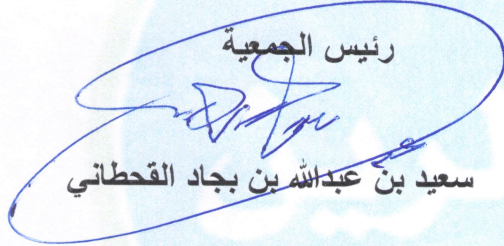 رئيس الجمعية
سعيد بن عبدالله بن بجاد القحطاني